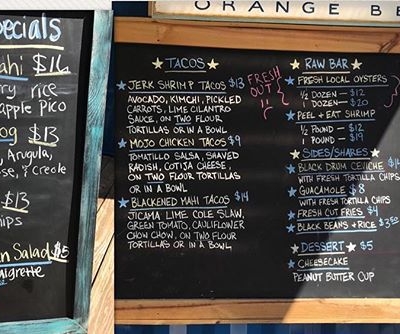 ecials
ahi $16
ry rice
apple Pico
og $13
Arugula,
se, & Creole
$13
ips
n Salad $15
aigrette
ORANGE BE
★ TACOS ★
★ JERK SHRIMP TACOS $13
AVOCADO, KIMCHI, PICKLED
CARROTS, LIME CILANTRO
SAUCE, ON TWO FLOUR
TORTILLAS OR IN A BOWL
★ MOJO CHICKEN TACOS $9
TOMATILLO SALSA, SHAVED
RADISH, COTIJA CHEESE,
ON TWO FLOUR TORTILLAS
OR IN A BOWL
★ BLACKENED MAHI TACOS $14
JICAMA LIME COLE SLAW,
GREEN TOMATO, CAULIFLOWER
CHOW CHOW, ON TWO FLOUR
TORTILLAS OR IN A BOWL
FRESH
OUT
★ RAW BAR ★
★ FRESH LOCAL OYSTERS
½ DOZEN — $12
1 DOZEN — $20
★ PEEL + EAT SHRIMP
½ POUND — $12
1 POUND — $19
★ SIDES/SHARES ★
★ BLACK DRUM CEVICHE $14
WITH FRESH TORTILLA CHIPS
★ GUACAMOLE $8
WITH FRESH TORTILLA CHIPS
★ FRESH CUT FRIES $4
★ BLACK BEANS + RICE $3.50
★ DESSERT ★ $5
★ CHEESECAKE
PEANUT BUTTER CUP